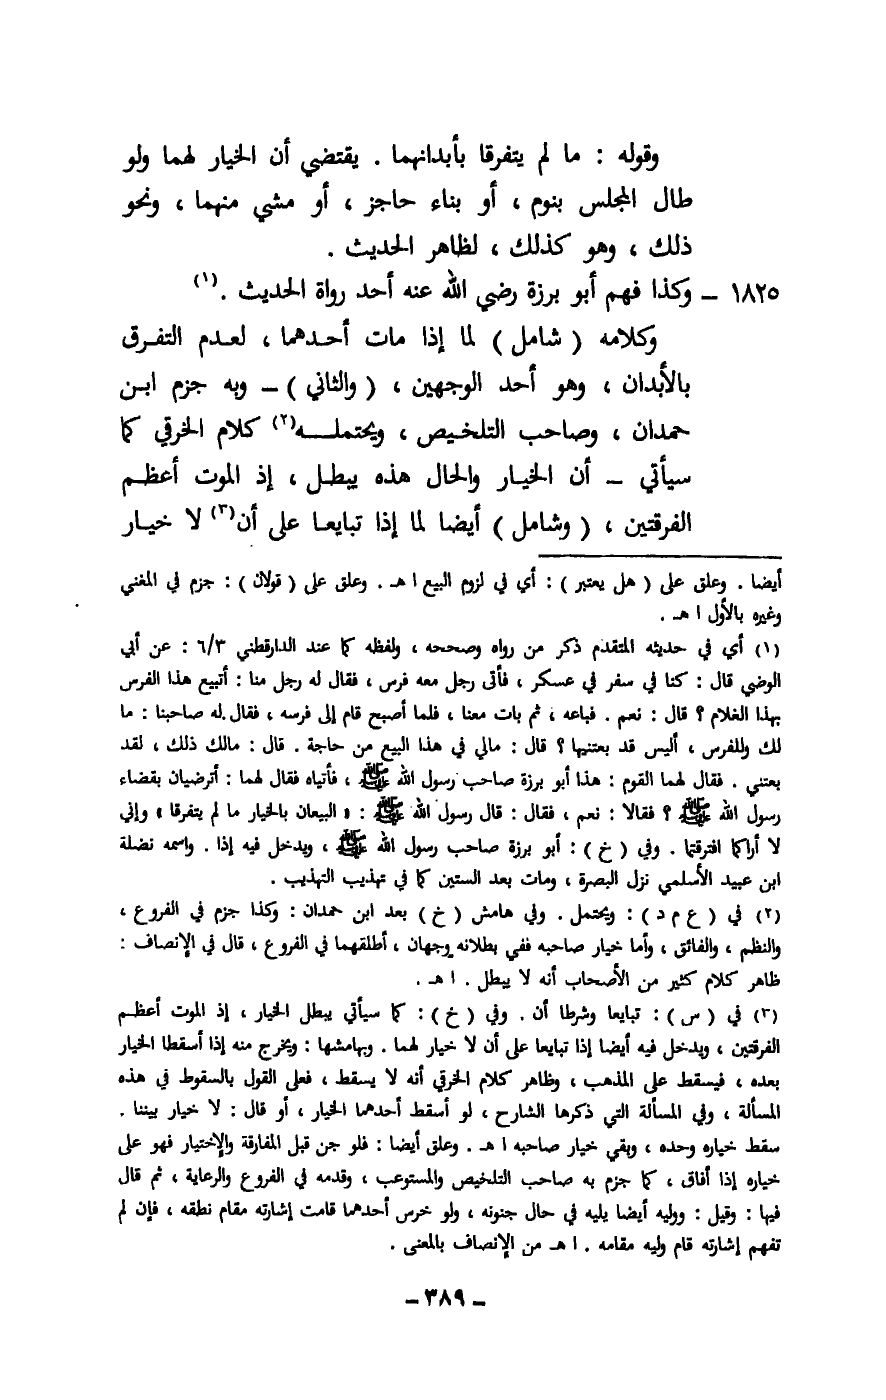 وقوله : ما لم يتفرقا بأبدانهما . يقتضي أن الخيار لهما ولو
طال المجلس بنوم ، أو بناء حاجز ، أو مشي منهما ، ونحو
ذلك ، وهو كذلك ، لظاهر الحديث .
١٨٢٥ – وكذا فهم أبو برزة رضي الله عنه أحد رواة الحديث .(١)
وكلامه ( شامل ) لما إذا مات أحدهما ، لعدم التفرق
بالأبدان ، وهو أحد الوجهين ، ( والثاني ) – وبه جزم ابن
حمدان ، وصاحب التلخيص ، ويحتمله(٢) كلام الخرقي كما
سيأتي – أن الخيار والحال هذه يبطل ، إذ الموت أعظم
الفرقتين ، ( وشامل ) أيضا لما إذا تبايعا على أن(٣) لا خيار
أيضا . وعلق على ( هل يعتبر ) : أي في لزوم البيع ا هـ . وعلق على ( قولان ) : جزم في المغني
وغيره بالأول ا هـ .
(١) أي في حديثه المتقدم ذكر من رواه وصححه ، ولفظه كما عند الدارقطني ٦/٣ : عن أبي
الوضي قال : كنا في سفر في عسكر ، فأتى رجل معه فرس ، فقال له رجل منا : أتبيع هذا الفرس
بهذا الغلام ؟ قال : نعم . فباعه ، ثم بات معنا ، فلما أصبح قام إلى فرسه ، فقال له صاحبنا : ما
لك وللفرس ، أليس قد بعتنيها ؟ قال : مالي في هذا البيع من حاجة . قال : مالك ذلك ، لقد
بعتني . فقال لهما القوم : هذا أبو برزة صاحب رسول الله ﷺ ، فأتياه فقال لهما : أترضيان بقضاء
رسول الله ﷺ ؟ فقالا : نعم ، فقال : قال رسول الله ﷺ : « البيعان بالخيار ما لم يتفرقا » وإني
لا أراكما افترقتما . وفي ( خ ) : أبو برزة صاحب رسول الله ﷺ ، ويدخل فيه إذا . واسمه نضلة
ابن عبيد الأسلمي نزل البصرة ، ومات بعد الستين كما في تهذيب التهذيب .
(٢) في ( ع م د ) : ويحتمل . وفي هامش ( خ ) بعد ابن حمدان : وكذا جزم في الفروع ،
والنظم ، والفائق ، وأما خيار صاحبه ففي بطلانه وجهان ، أطلقهما في الفروع ، قال في الإنصاف :
ظاهر كلام كثير من الأصحاب أنه لا يبطل . ا هـ .
(٣) في ( س ) : تبايعا وشرطا أن . وفي ( خ ) : كما سيأتي يبطل الخيار ، إذ الموت أعظم
الفرقتين ، ويدخل فيه أيضا إذا تبايعا على أن لا خيار لهما . وبهامشها : ويخرج منه إذا أسقطا الخيار
بعده ، فيسقط على المذهب ، وظاهر كلام الخرقي أنه لا يسقط ، فعلى القول بالسقوط في هذه
المسألة ، وفي المسألة التي ذكرها الشارح ، لو أسقط أحدهما الخيار ، أو قال : لا خيار بيننا .
سقط خياره وحده ، وبقي خيار صاحبه ا هـ . وعلق أيضا : فلو جن قبل المفارقة والإختيار فهو على
خياره إذا أفاق ، كما جزم به صاحب التلخيص والمستوعب ، وقدمه في الفروع والرعاية ، ثم قال
فيها : وقيل : ووليه أيضا يليه في حال جنونه ، ولو خرس أحدهما قامت إشارته مقام نطقه ، فإن لم
تفهم إشارته قام وليه مقامه . ا هـ من الإنصاف بالمعنى .
– ٣٨٩ –